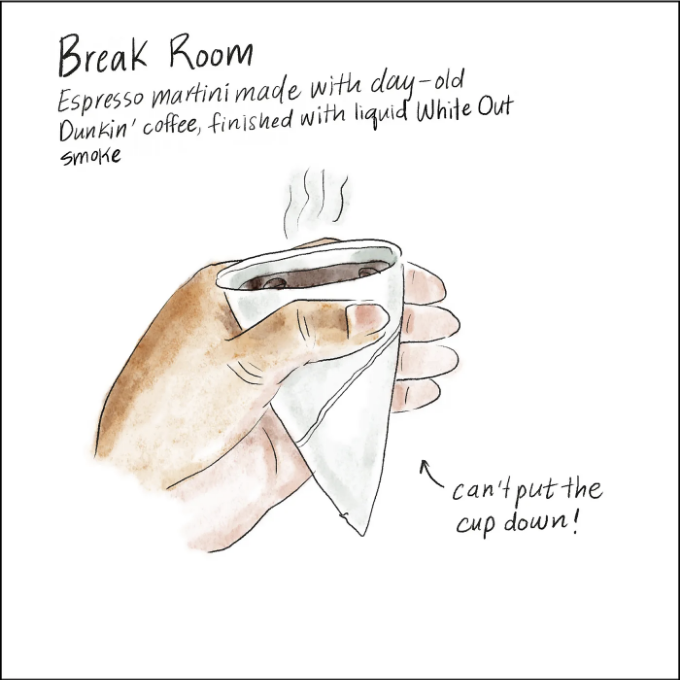 Break Room
Espresso martini made with day-old
Dunkin' coffee, finished with liquid White Out
smoke
can't put the
cup down!